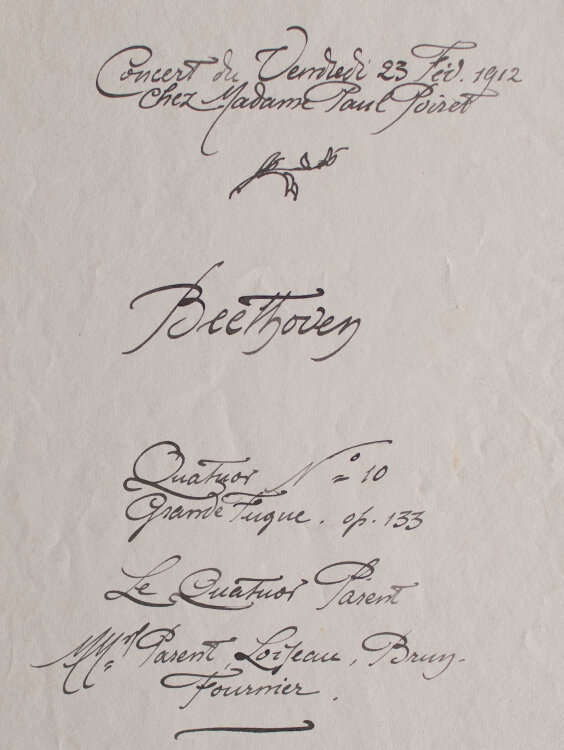 Concert du Vendredi 23 Fév. 1912
chez Madame Paul Poiret
Beethoven
Quatuor Nº 10
Grande Fugue. op. 133
Le Quatuor Parent
MMrs Parent, Loiseau, Brun,
Fournier.